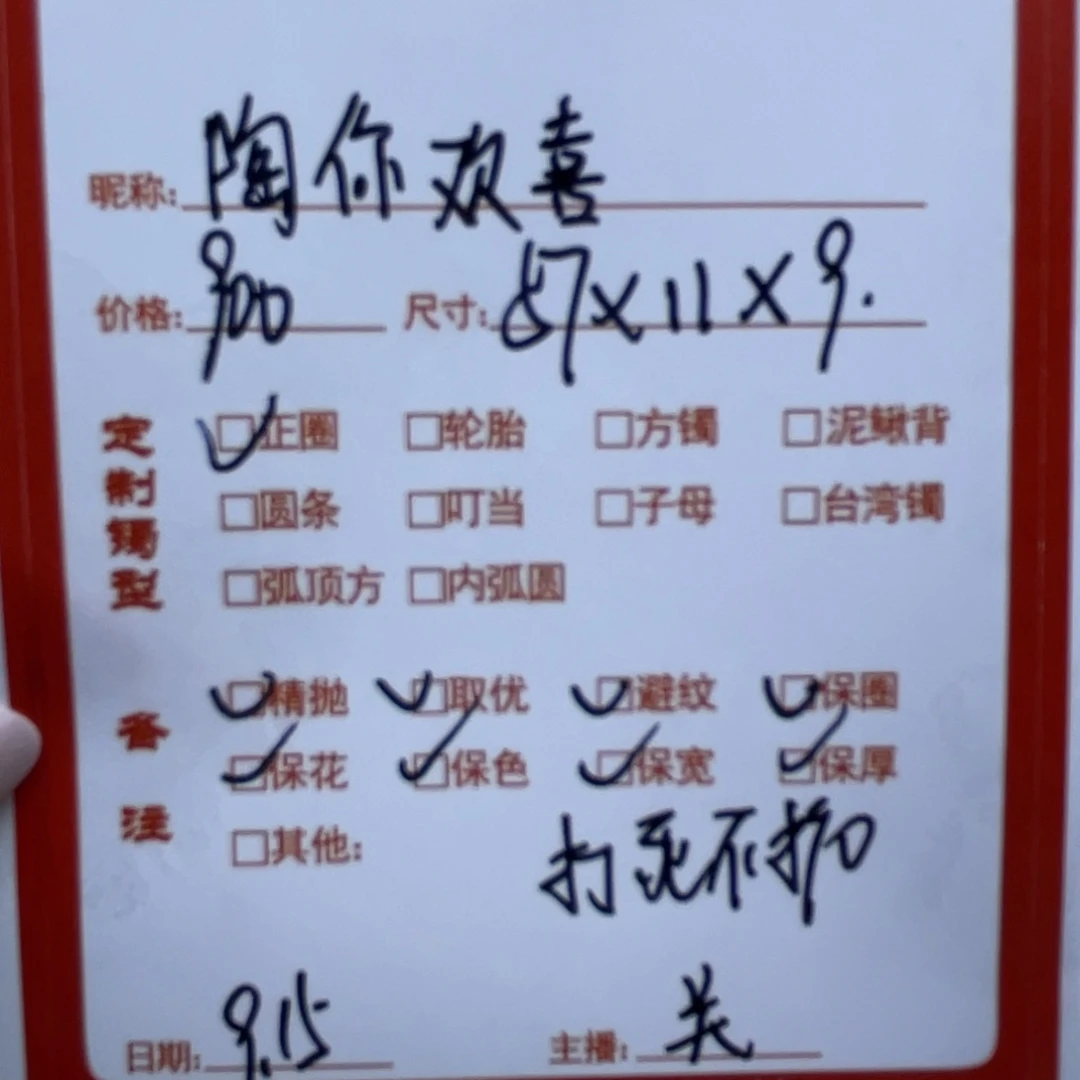 昵称: 陶你欢喜
价格: 900 尺寸: 57×11×9.
定制镯型
☑正圈 □轮胎 □方镯 □泥鳅背
□圆条 □叮当 □子母 □台湾镯
□弧顶方 □内弧圆
备注
☑精抛 ☑取优 ☑避纹 ☑保圈
☑保花 ☑保色 ☑保宽 ☑保厚
□其他: 打死不扣
日期: 9.15 主播: 关